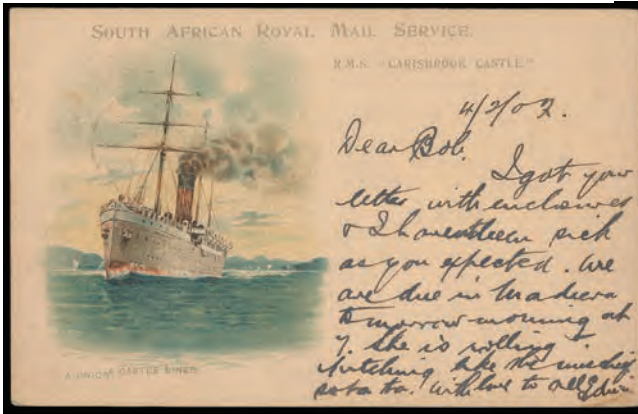 SOUTH AFRICAN ROYAL MAIL SERVICE.
R.M.S. "CARISBROOK CASTLE"
4/2/02.
Dear Bob.
I got your
letter with enclosures
& I havent been sick
as you expected. We
are due in Madeira
tomorrow morning at
7. She is rolling &
pitching like the mischief
so ta ta. With love to all Edwin
A UNION CASTLE LINER